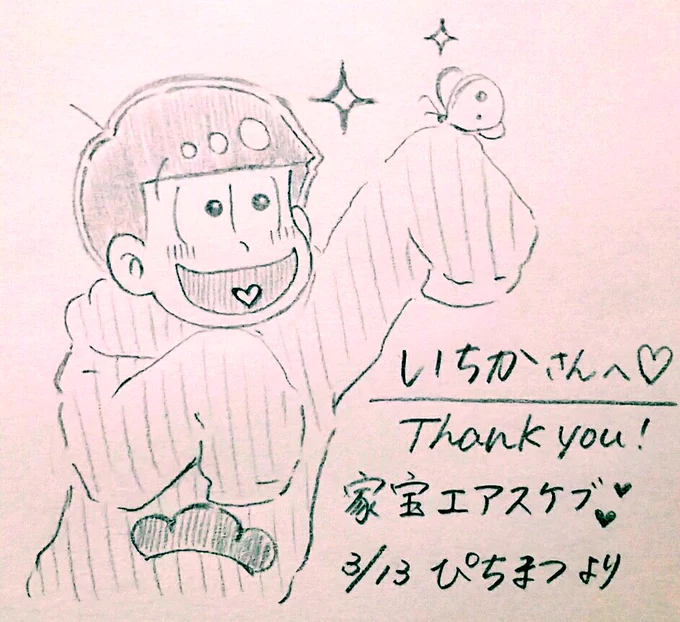 いちかさんへ♡
Thank you!
家宝エアスケブ♥♥
3/13 ぴちまつより